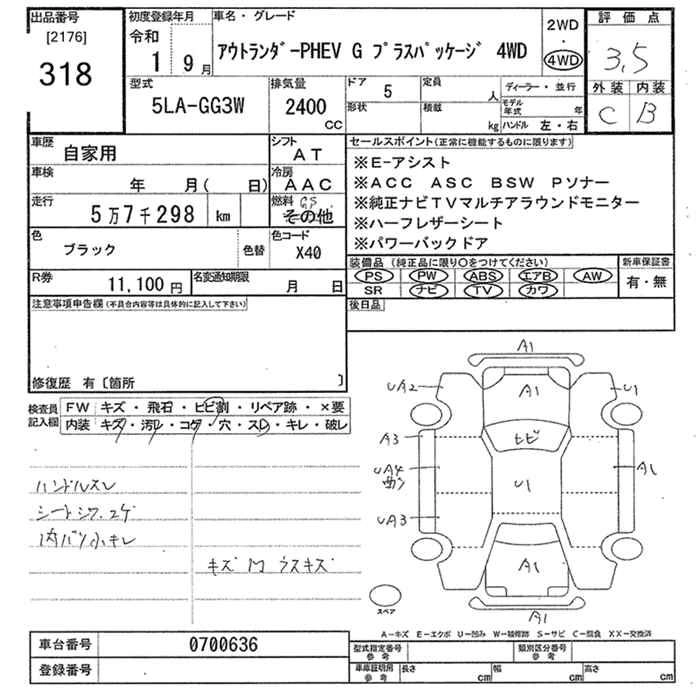 出品番号
[2176]
318
初度登録年月
令和
1 9月
車名・グレード
アウトランダーPHEV G プラスパッケージ 4WD
2WD
・
4WD
評価点
3.5
外装 内装
C B
型式
5LA-GG3W
排気量
2400
CC
ドア 5
形状
定員 人
積載 kg
ディーラー・並行
モデル年式 年
ハンドル 左・右
車歴
自家用
シフト
AT
車検
年 月( 日)
冷房
AAC
走行
5万7千298 km
燃料 GS
その他
色
ブラック
色替
色コード
X40
R券
11,100円
名変通知期限
月 日
セールスポイント(正常に機能するものに限ります)
※E-アシスト
※ACC ASC BSW Pソナー
※純正ナビTVマルチアラウンドモニター
※ハーフレザーシート
※パワーバックドア
装備品(純正品に限り○をつけてください)
PS PW ABS エアB AW
SR ナビ TV カワ
新車保証書
有・無
後日品
注意事項申告欄(不具合内容等は具体的に記入して下さい)
修復歴 有〔箇所 〕
検査員記入欄
FW キズ・飛石・ヒビ割・リペア跡・×要
内装 キズ・汚レ・コゲ・穴・スレ・キレ・破レ
ハンドルスレ
シートシワ.コゲ
内バリ小キレ
キズM ウスキズ
A1
UA2 A1 U1
A3 ヒビ
UA4 U1 A1
UA3
A1
A1
スペア
A-キズ E-エクボ U-凹み W-補修跡 S-サビ C-腐食 XX-交換済
車台番号 0700636
登録番号
型式指定番号参考
類別区分番号参考
車庫証明用参考 長さ cm 幅 cm 高さ cm